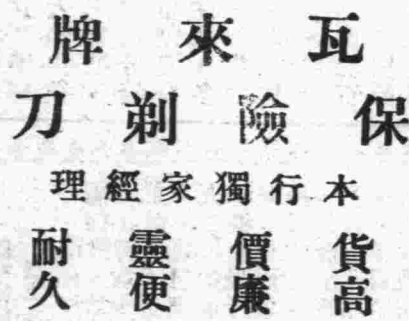 瓦來牌
保險剃刀
本行獨家經理
貨高
價廉
靈便
耐久